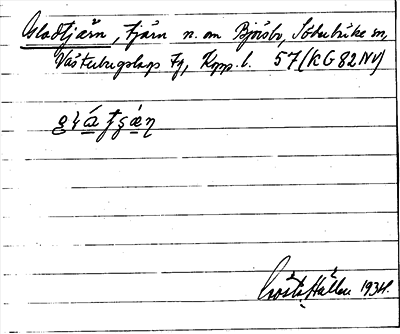 Gladtjärn, tjärn n. om Björsbo, Söderbärke sn,
Västerbergslags fg, Kopp. l. 57 (KG 82 NV)
Gösta Hallen 1934.